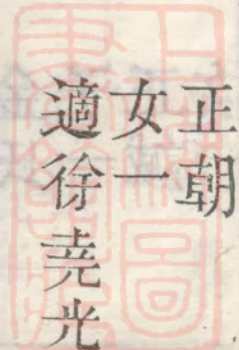 正朝
女一
適徐尭光